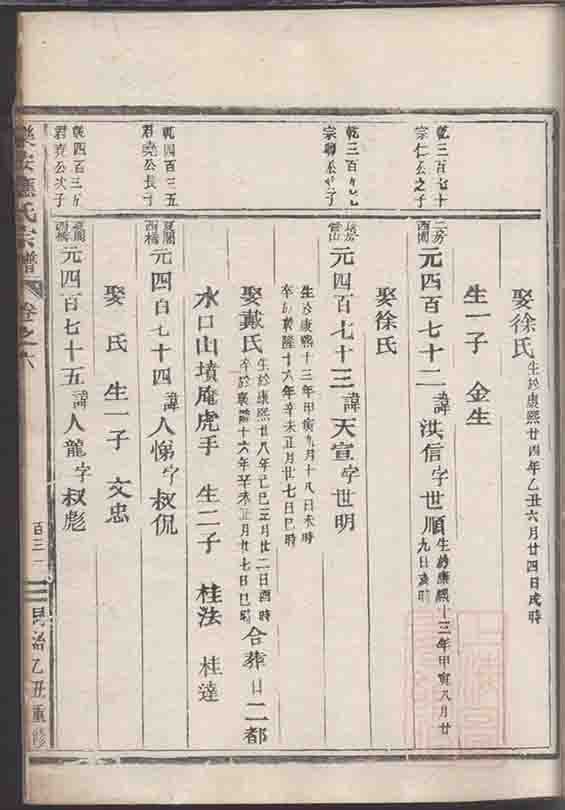 娶徐氏 生於康熙廿四年乙丑六月廿四日戌時
生一子 金生
乾三百七十
宗仁公之子
二房
西閣
元四百七十二 諱洪信字世順 生於康熙十三年甲寅八月廿
九日亥時
娶徐氏
乾三百
宗聯公子
元四百七十三 諱天宣字世明
生於康熙十三年甲寅九月十八日未時
卒於乾隆十六年辛未正月廿七日巳時
娶戴氏 生於康熙廿八年己巳三月廿二日酉時
卒於乾隆十六年辛未正月廿七日巳時
合葬 二都
水口山墳庵虎手 生二子 桂法 桂達
乾四百三五
君堯公長子
西橋
元四百七十四 諱人悌字叔侃
娶 氏 生一子 文忠
乾四百三五
君堯公次子
西橋
元四百七十五 諱人龍字叔彪
樂安 氏宗譜 卷之六
百三一
同治乙丑重修